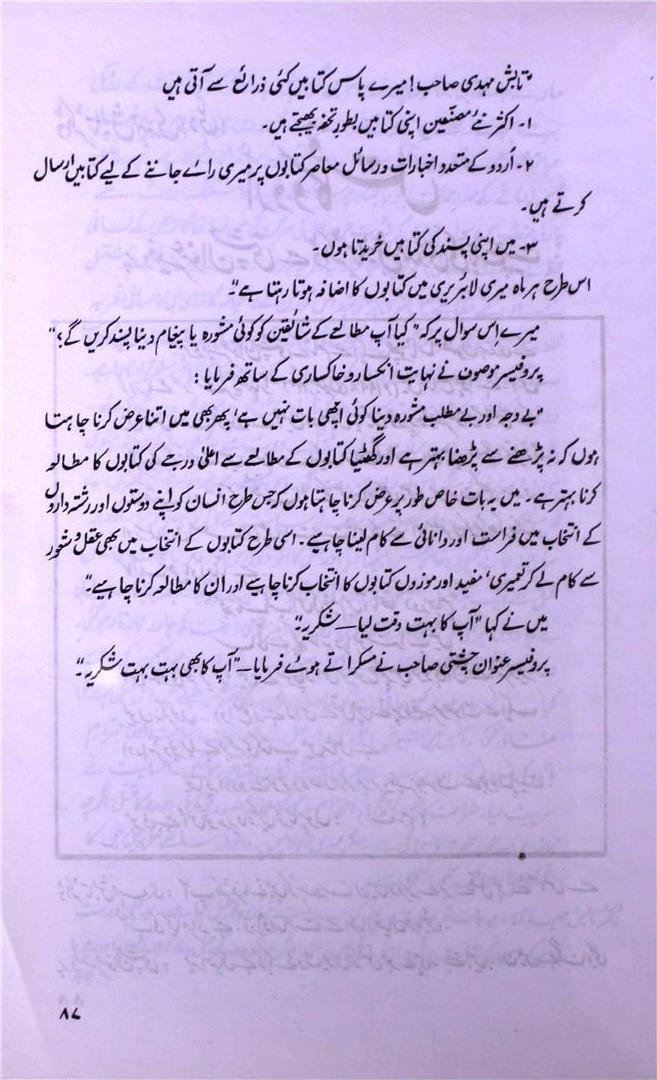 "تابش مہدی صاحب! میرے پاس کتابیں کئی ذرائع سے آتی ہیں
۱۔ اکثر نئے مصنّفین اپنی کتابیں بطور تحفہ بھیجتے ہیں۔
۲۔ اُردو کے متعدد اخبارات و رسائل معاصر کتابوں پر میری رائے جاننے کے لیے کتابیں ارسال
کرتے ہیں۔
۳۔ میں اپنی پسند کی کتابیں خریدتا ہوں۔
اس طرح ہر ماہ میری لائبریری میں کتابوں کا اضافہ ہوتا رہتا ہے"۔
میرے اِس سوال پر کہ "کیا آپ مطالعے کے شائقین کو کوئی مشورہ یا پیغام دینا پسند کریں گے؟"
پروفیسر موصوف نے نہایت انکسار و خاکساری کے ساتھ فرمایا:
"بے وجہ اور بے مطلب مشورہ دینا کوئی اچھی بات نہیں ہے، پھر بھی میں اتنا عرض کرنا چاہتا
ہوں کہ نہ پڑھنے سے پڑھنا بہتر ہے اور گھٹیا کتابوں کے مطالعے سے اعلیٰ درجے کی کتابوں کا مطالعہ
کرنا بہتر ہے۔ میں یہ بات خاص طور پر عرض کرنا چاہتا ہوں کہ جس طرح انسان کو اپنے دوستوں اور رشتہ داروں
کے انتخاب میں فراست اور دانائی سے کام لینا چاہیے۔ اسی طرح کتابوں کے انتخاب میں بھی عقل و شعور
سے کام لے کر تعمیری، مفید اور موزوں کتابوں کا انتخاب کرنا چاہیے اور ان کا مطالعہ کرنا چاہیے"۔
میں نے کہا "آپ کا بہت وقت لیا — شکریہ"۔
پروفیسر عنوان چشتی صاحب نے مسکراتے ہوئے فرمایا — "آپ کا بھی بہت بہت شکریہ"۔
۸۷